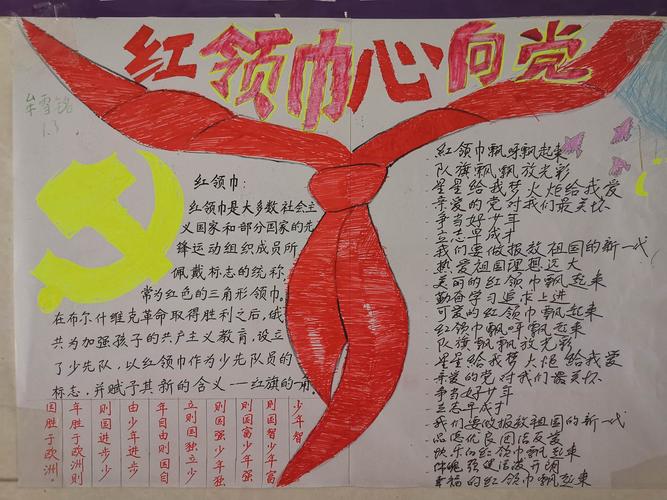 红领巾心向党
牟雪铭
1.3
红领巾:
红领巾是大多数社会主
义国家和部分国家的先
锋运动组织成员所
佩戴标志的统称,
常为红色的三角形领巾。
在布尔什维克革命取得胜利之后,俄
共为加强孩子的共产主义教育,设立
了少先队,以红领巾作为少先队员的
标志,并赋予其新的含义—红旗的一角。
少年智
则国智少年富
则国富少年强
则国强少年独
立则国独立少
年自由则国自
由少年进步
则国进步少
年胜于欧洲则
国胜于欧洲。
红领巾飘呀飘起来
队旗飘飘放光彩
星星给我梦火炬给我爱
亲爱的党对我们最关怀
争当好少年
立志早成才
我们要做报效祖国的新一代
热爱祖国理想远大
美丽的红领巾飘起来
勤奋学习追求上进
可爱的红领巾飘起来
红领巾飘呀飘起来
队旗飘飘放光彩
星星给我梦火炬给我爱
亲爱的党对我们最关怀
争当好少年
立志早成才
我们要做报效祖国的新一代
品德优良团结友爱
快乐的红领巾飘起来
体魄强健活泼开朗
幸福的红领巾飘起来